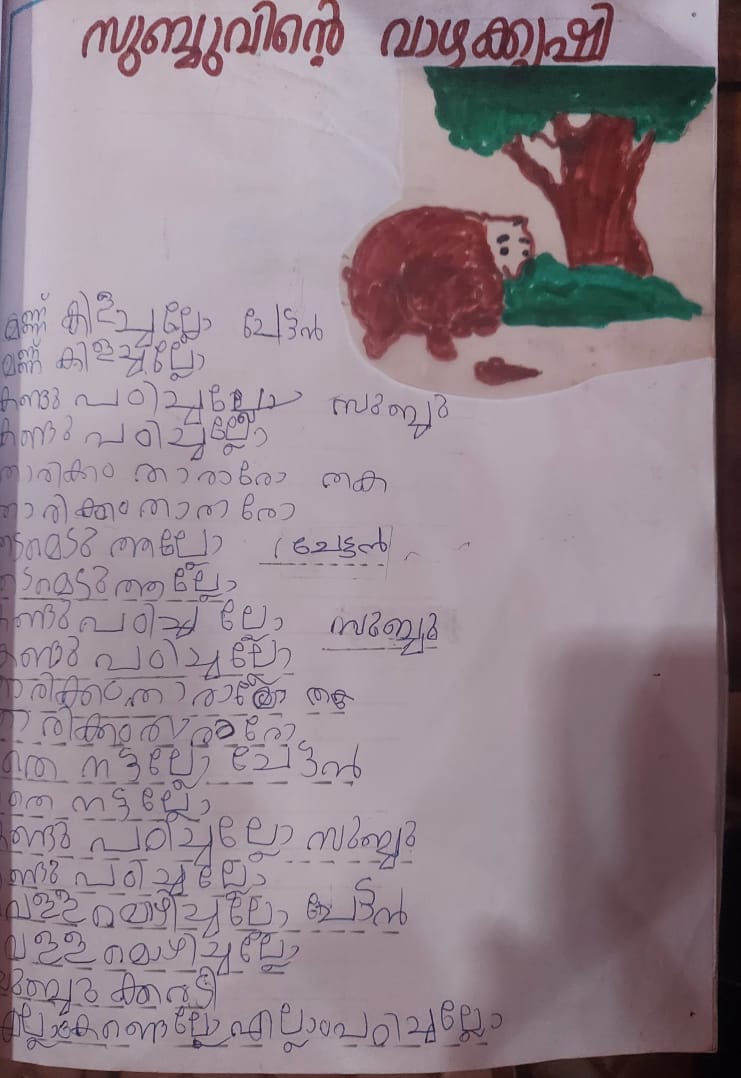 സുബ്ബുവിന്റെ വാഴക്കൃഷി
മണ്ണ് കിളച്ചല്ലോ ചേട്ടൻ
മണ്ണ് കിളച്ചല്ലോ
കണ്ടു പഠിച്ചല്ലോ സുബ്ബു
കണ്ടു പഠിച്ചല്ലോ
താരിക്കം താരാരോ തക
താരിക്കം താരാരോ
തടമെടുത്തല്ലോ ചേട്ടൻ
തടമെടുത്തല്ലോ
കണ്ടു പഠിച്ചല്ലോ സുബ്ബു
കണ്ടു പഠിച്ചല്ലോ
താരിക്കം താരാരോ തക
താരിക്കം താരാരോ
തൈ നട്ടല്ലോ ചേട്ടൻ
തൈ നട്ടല്ലോ
കണ്ടു പഠിച്ചല്ലോ സുബ്ബു
കണ്ടു പഠിച്ചല്ലോ
വള്ളമൊഴിച്ചല്ലോ ചേട്ടൻ
വള്ളമൊഴിച്ചല്ലോ
സുബ്ബു ക്കരടി
എല്ലാംകണ്ടല്ലോ എല്ലാംപഠിച്ചല്ലോ